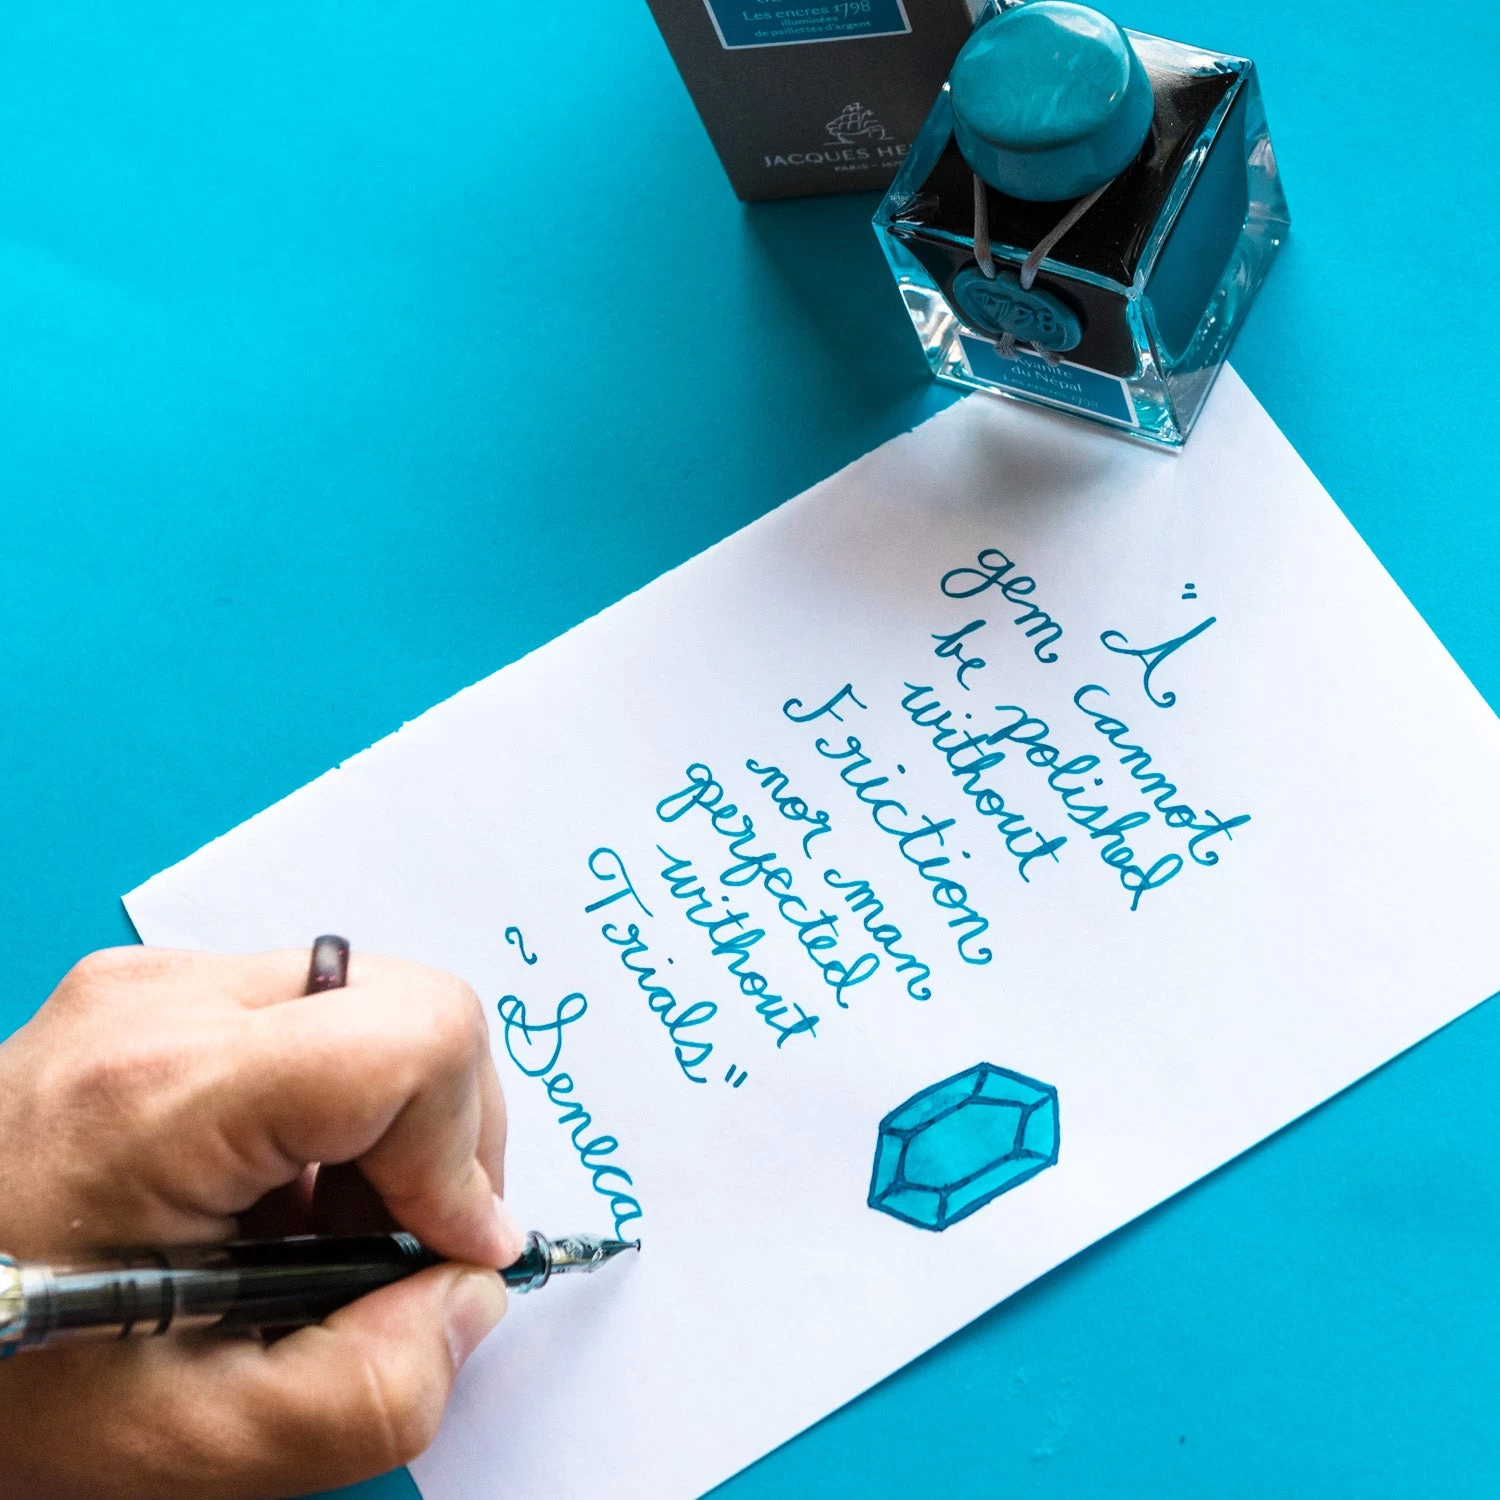 Les encres 1798
illuminées
de paillettes d'argent
JACQUES HE
PARIS
1798
Kyanite
du Népal
Les encres 1798
"A
gem cannot
be polished
without
Friction
nor man
perfected
without
Trials"
~ Seneca